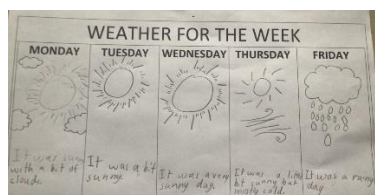 WEATHER FOR THE WEEK
MONDAY TUESDAY WEDNESDAY THURSDAY FRIDAY
It was
with a bit of
clouds.
It was a bit
sunny.
It was a very
sunny day.
It was a little
bit sunny but
mostly cold.
It was a rainy
day.